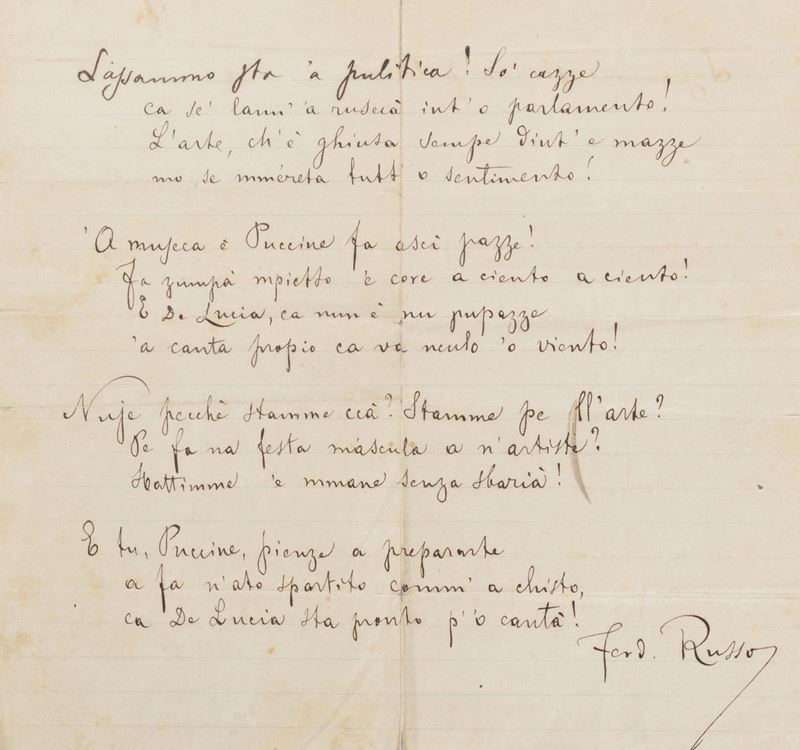 Lassammo sta 'a pulitica! So' cazze
ca se' lann' 'a ruscià int' 'o parlamento!
L'arte, ch'è ghiuta sempe dint' 'e mazze
mo se mméreta tutt' 'o sentimento!
'A museca 'e Puccine fa ascì pazze!
Fa zumpà mpietto 'e core a ciento a ciento!
E De Lucia, ca nun è nu pupazze
'a canta propio ca va nculo 'o viento!
Nuje pecchè stamme ccà? Stamme pe ll'arte?
Pe fa na festa mascula a n'artiste?
Sbattimme 'e mmane senza sbarià!
E tu, Puccine, pienze a prepararte
a fa n'ato spartito comm' a chisto,
ca De Lucia sta pronto p' 'o cantà!
Ferd. Russo